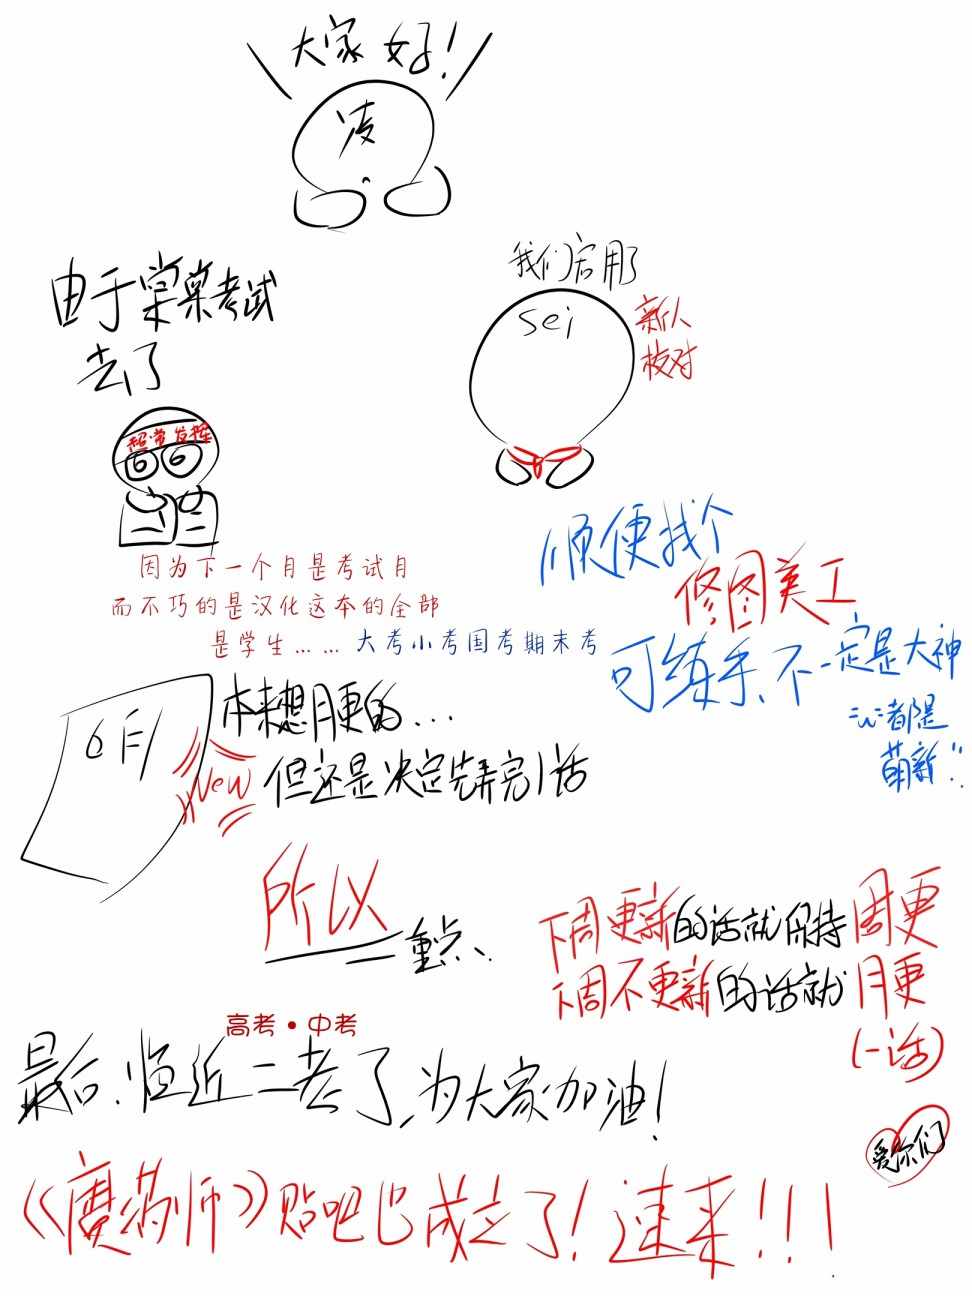 大家好!
凌
由于棠棠考试
去了
超常发挥
我们启用了
sei
新人
校对
因为下一个月是考试月
而不巧的是汉化这本的全部
是学生……大考小考国考期末考
顺便找个
修图美工
可练手、不一定是大神
"w"者都是
萌新"
6月
New
本来想月更的...
但还是决定先弄完1话
所以
重点、
下周更新的话就保持周更
下周不更新的话就月更
(一话)
高考·中考
最后、临近二考了、为大家加油!
爱你们
《魔药师》贴吧已成立了!速来!!!